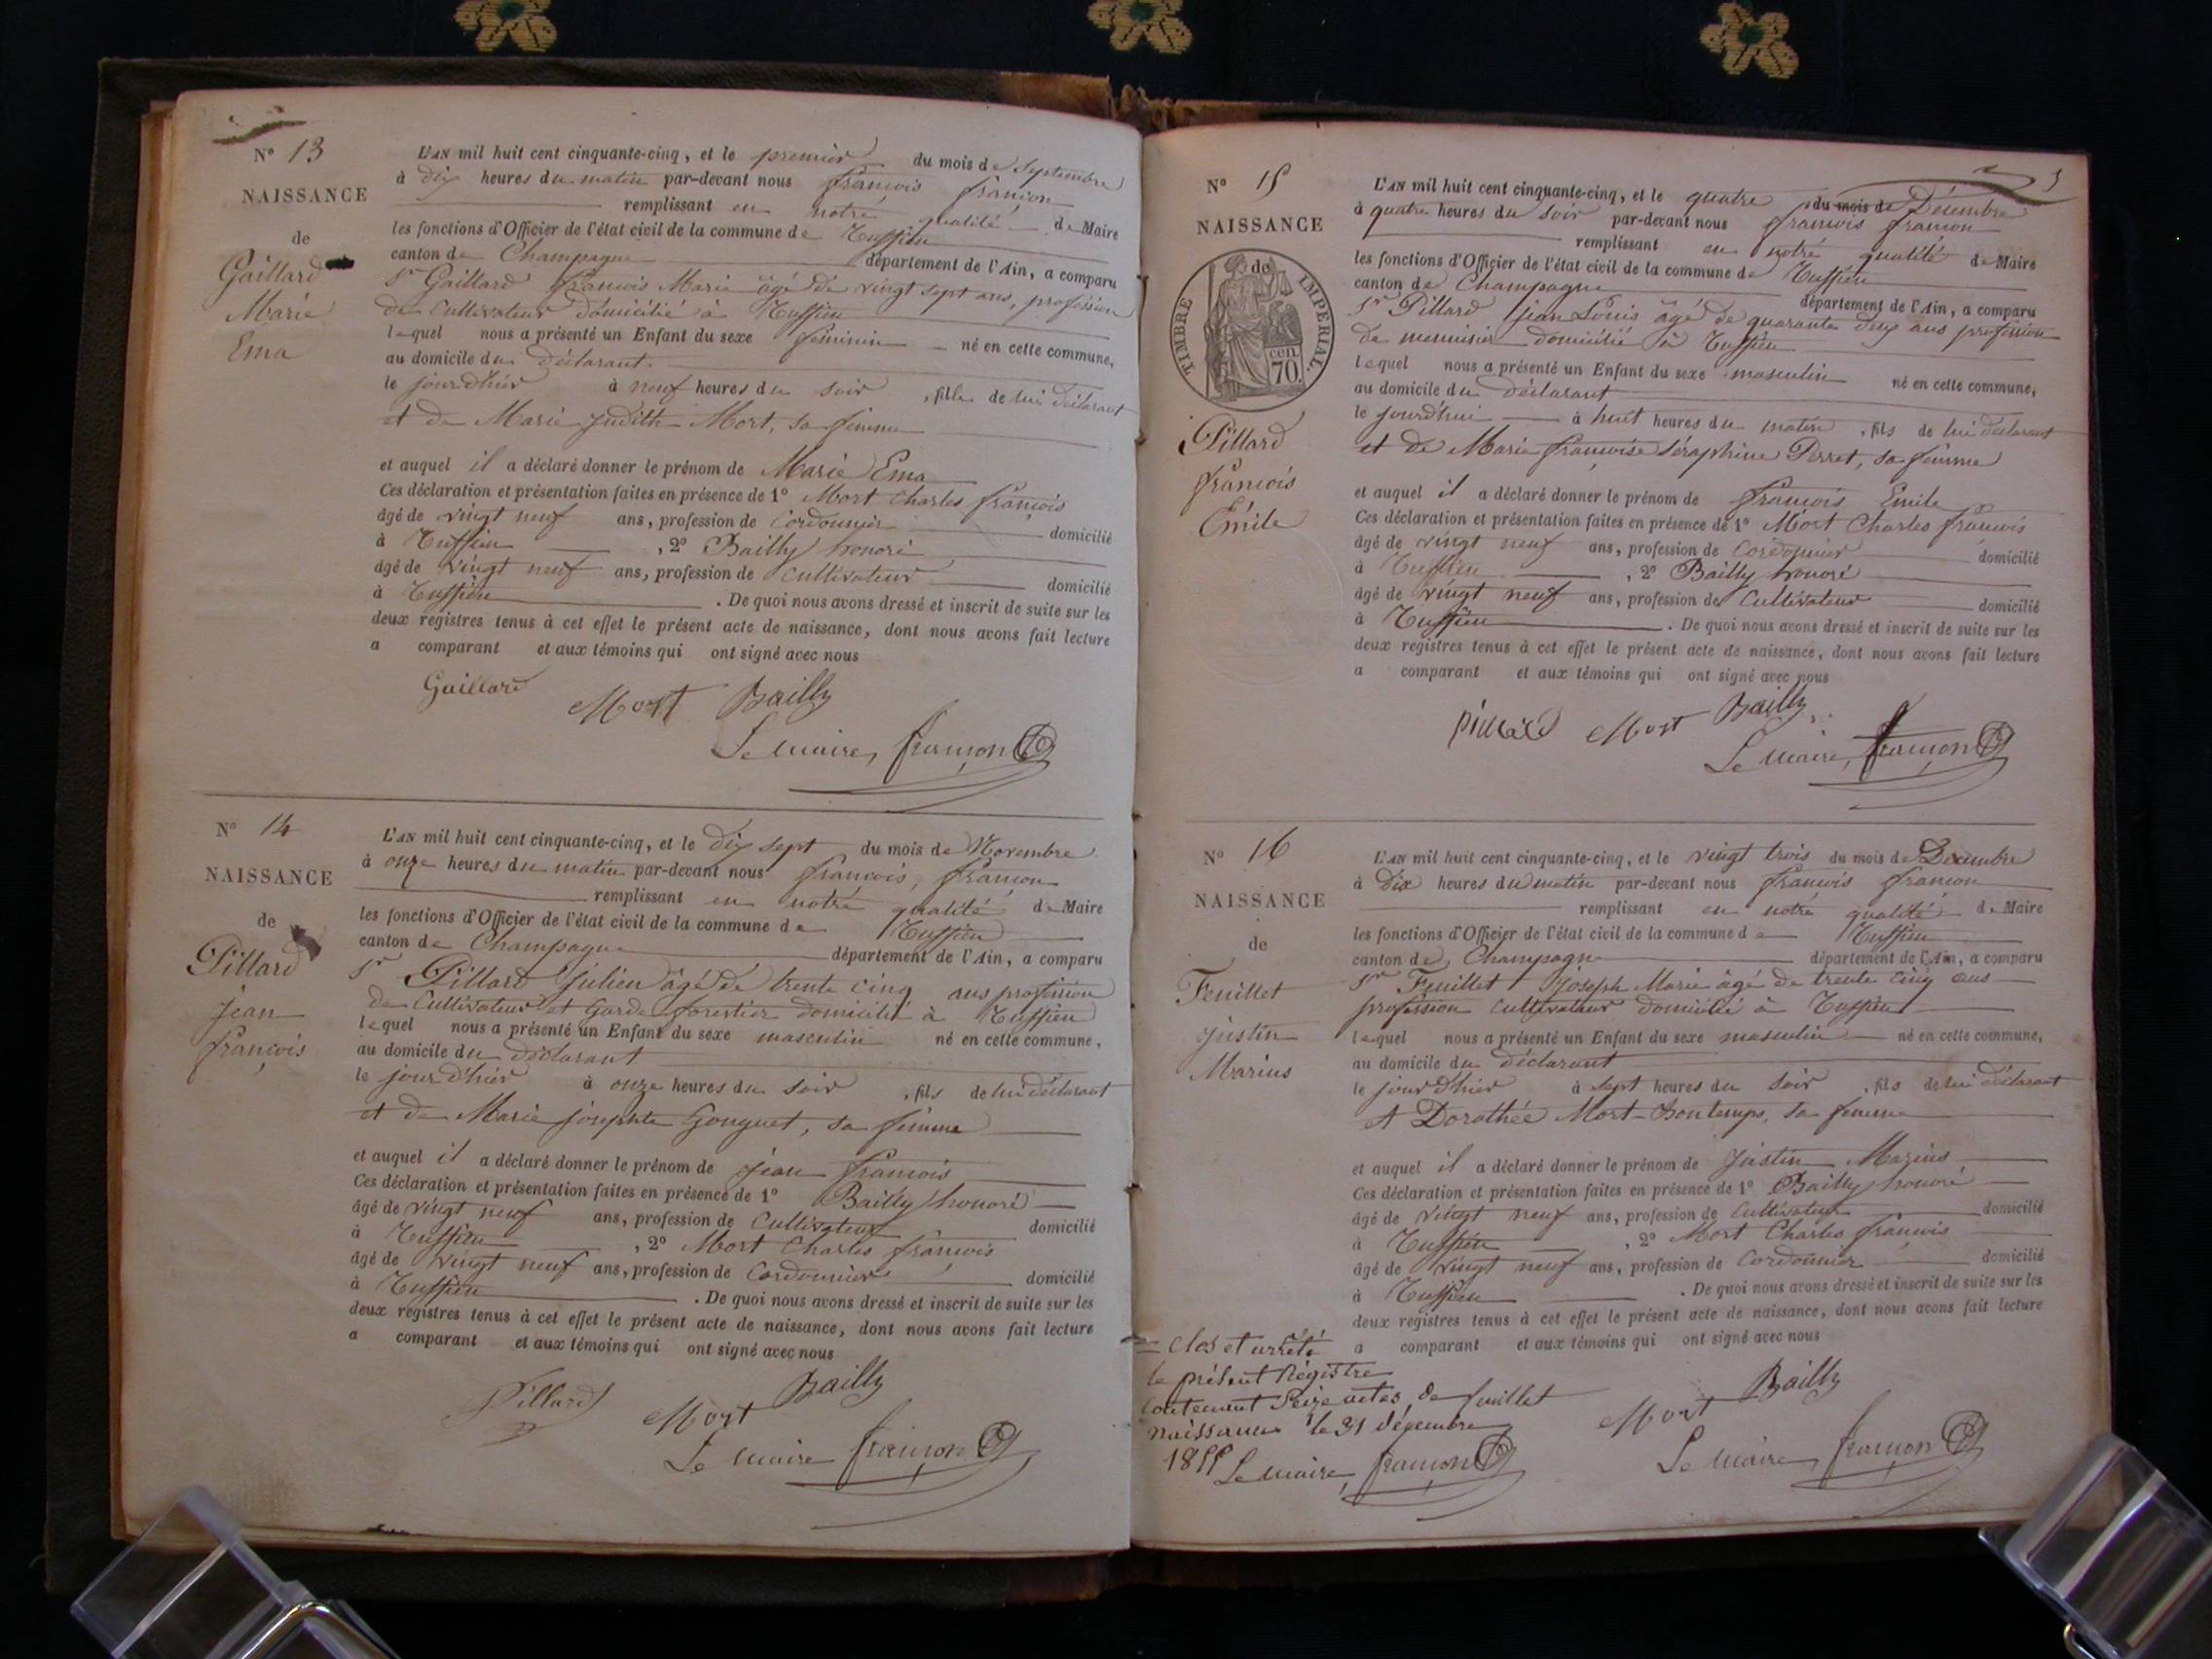 N° 13
NAISSANCE
de
Gaillard
Marie
Ema
L'AN mil huit cent cinquante-cinq, et le premier du mois de Septembre
à dix heures du matin par-devant nous françois françon
remplissant en notre qualité de Maire
les fonctions d'Officier de l'état civil de la commune de
canton de Champagne département de l'Ain, a comparu
Sr Gaillard françois Marie âgé de vingt sept ans, profession
de Cultivateur domicilié à
lequel nous a présenté un Enfant du sexe féminin né en cette commune,
au domicile du déclarant
le jour d'hier à neuf heures du soir, fille de lui déclarant
et de Marie Judith Mort, sa femme
et auquel il a déclaré donner le prénom de Marie Ema
Ces déclaration et présentation faites en présence de 1° Mort Charles françois
âgé de vingt neuf ans, profession de Cordonnier domicilié
à , 2° Bailly honoré
âgé de vingt neuf ans, profession de Cultivateur domicilié
à . De quoi nous avons dressé et inscrit de suite sur les
deux registres tenus à cet effet le présent acte de naissance, dont nous avons fait lecture
a comparant et aux témoins qui ont signé avec nous
Gaillard Mort Bailly
Le maire, françon
N° 14
NAISSANCE
de
Pillard
jean
françois
L'AN mil huit cent cinquante-cinq, et le dix sept du mois de Novembre
à onze heures du matin par-devant nous françois, françon
remplissant en notre qualité de Maire
les fonctions d'Officier de l'état civil de la commune de
canton de Champagne département de l'Ain, a comparu
Sr Pillard julien âgé de trente cinq ans profession
de Cultivateur et garde forestier domicilié à
lequel nous a présenté un Enfant du sexe masculin né en cette commune,
au domicile du déclarant
le jour d'hier à onze heures du soir, fils de lui déclarant
et de Marie josephte Gonguet, sa femme
et auquel il a déclaré donner le prénom de jean françois
Ces déclaration et présentation faites en présence de 1° Bailly honoré
âgé de vingt neuf ans, profession de Cultivateur domicilié
à , 2° Mort Charles françois
âgé de vingt neuf ans, profession de Cordonnier domicilié
à . De quoi nous avons dressé et inscrit de suite sur les
deux registres tenus à cet effet le présent acte de naissance, dont nous avons fait lecture
a comparant et aux témoins qui ont signé avec nous
Pillard Mort Bailly
Le maire françon
N° 15
NAISSANCE
de
TIMBRE IMPERIAL.
cen.
70.
Pillard
françois
Emile
L'AN mil huit cent cinquante-cinq, et le quatre du mois de Décembre
à quatre heures du soir par-devant nous françois françon
remplissant en notre qualité de Maire
les fonctions d'Officier de l'état civil de la commune de
canton de Champagne département de l'Ain, a comparu
Sr Pillard jean Louis âgé de quarante deux ans profession
de menuisier domicilié à
lequel nous a présenté un Enfant du sexe masculin né en cette commune,
au domicile du déclarant
le jourd'hui à huit heures du matin, fils de lui déclarant
et de Marie françoise Séraphine Perret, sa femme
et auquel il a déclaré donner le prénom de françois Emile
Ces déclaration et présentation faites en présence de 1° Mort Charles françois
âgé de vingt neuf ans, profession de Cordonnier domicilié
à , 2° Bailly honoré
âgé de vingt neuf ans, profession de Cultivateur domicilié
à . De quoi nous avons dressé et inscrit de suite sur les
deux registres tenus à cet effet le présent acte de naissance, dont nous avons fait lecture
a comparant et aux témoins qui ont signé avec nous
pillard Mort Bailly
Le maire, françon
N° 16
NAISSANCE
de
Feuillet
justin
Marius
L'AN mil huit cent cinquante-cinq, et le vingt trois du mois de Décembre
à Dix heures du matin par-devant nous françois françon
remplissant en notre qualité de Maire
les fonctions d'Officier de l'état civil de la commune de
canton de Champagne département de l'Ain, a comparu
Sr Feuillet joseph Marie âgé de trente cinq ans
profession cultivateur domicilié à
lequel nous a présenté un Enfant du sexe masculin né en cette commune,
au domicile du déclarant
le jour d'hier à sept heures du soir, fils de lui déclarant
et Dorothée Mort-Bontemps, sa femme
et auquel il a déclaré donner le prénom de justin Marius
Ces déclaration et présentation faites en présence de 1° Bailly honoré
âgé de vingt neuf ans, profession de Cultivateur domicilié
à , 2° Mort Charles françois
âgé de vingt neuf ans, profession de Cordonnier domicilié
à . De quoi nous avons dressé et inscrit de suite sur les
deux registres tenus à cet effet le présent acte de naissance, dont nous avons fait lecture
a comparant et aux témoins qui ont signé avec nous
feuillet Mort Bailly
Le maire, françon
Clos et arrêté
le présent Régistre
contenant Seize actes de
naissances le 31 décembre
1855 Le maire, françon